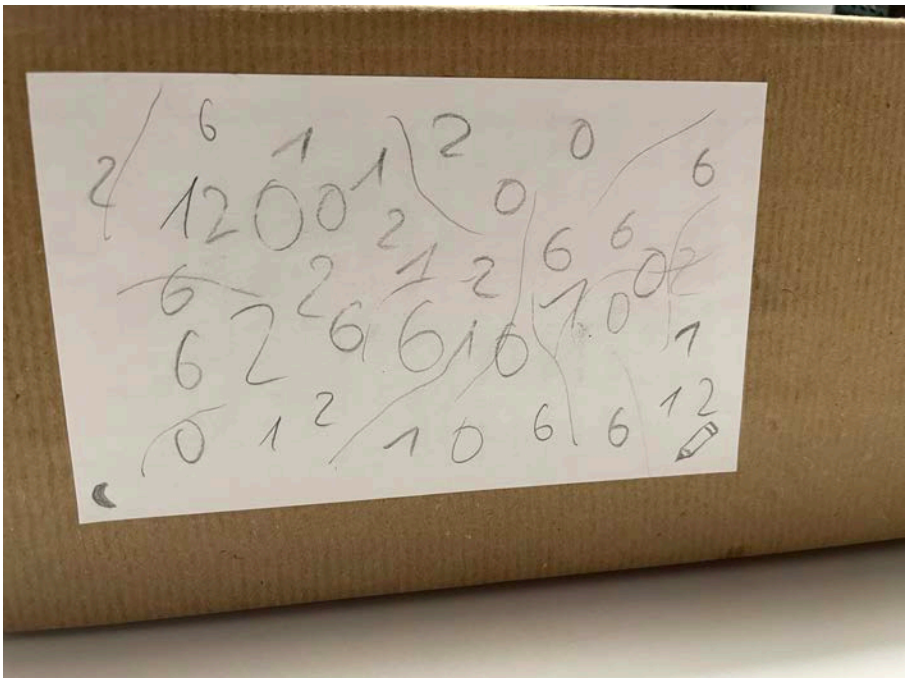 6 1 2 0
2 12 0 0 1 0 6
2 6 6
6 2 1 2 0 2
6 2 6 6 1 0 1 0 1
0 1 2 1 0 6 6 12